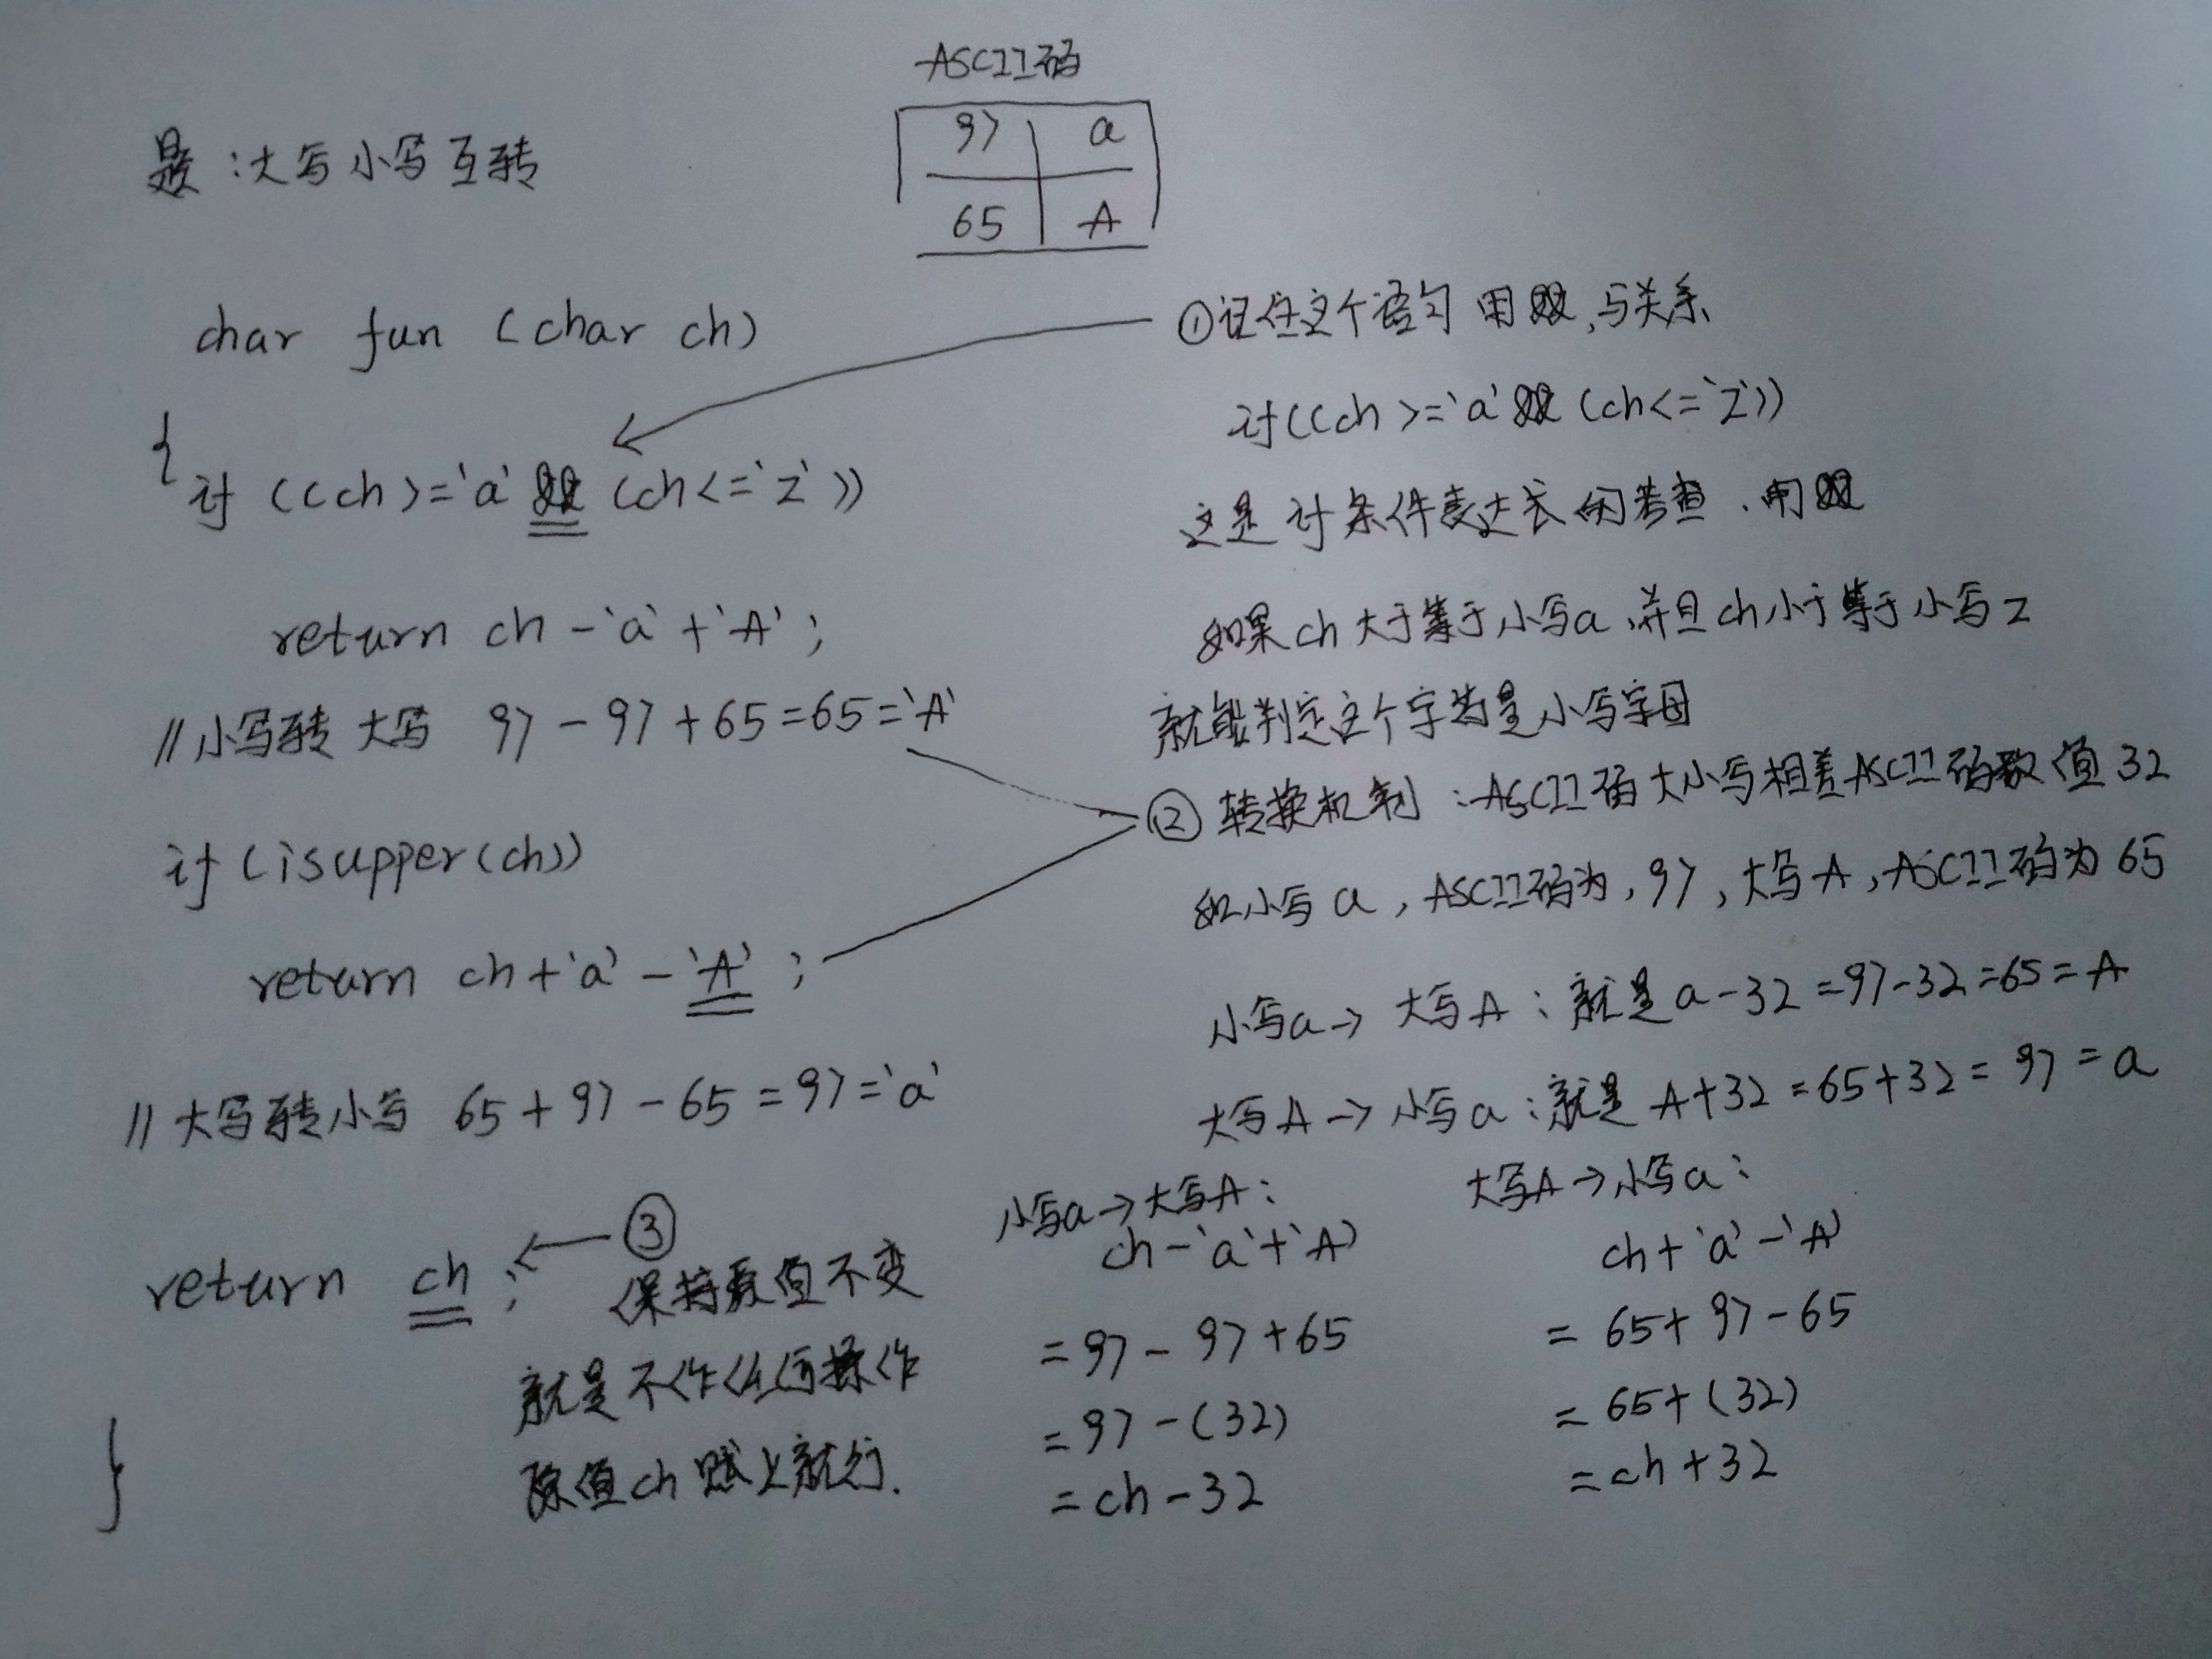 ASCII码
97 a
65 A
题:大写小写互转
char fun (char ch)
{
if ((ch>='a' && (ch<='z'))
return ch-'a'+'A';
//小写转大写 97-97+65=65='A'
if (isupper(ch))
return ch+'a'-'A';
//大写转小写 65+97-65=97='a'
return ch;
}
①记住这个语句 用&&,与关系
if((ch>='a'&&(ch<='z'))
这是if条件表达式的考查、用&&
如果ch大于等于小写a,并且ch小于等于小写z
就能判定这个字符是小写字母
②转换机制:ASCII码大小写相差ASCII码数值32
如小写a,ASCII码为,97,大写A,ASCII码为65
小写a→大写A:就是a-32=97-32=65=A
大写A→小写a:就是A+32=65+32=97=a
③
保持原值不变
就是不作任何操作
原值ch赋上就行.
小写a→大写A:
ch-'a'+'A'
=97-97+65
=97-(32)
=ch-32
大写A→小写a:
ch+'a'-'A'
=65+97-65
=65+(32)
=ch+32